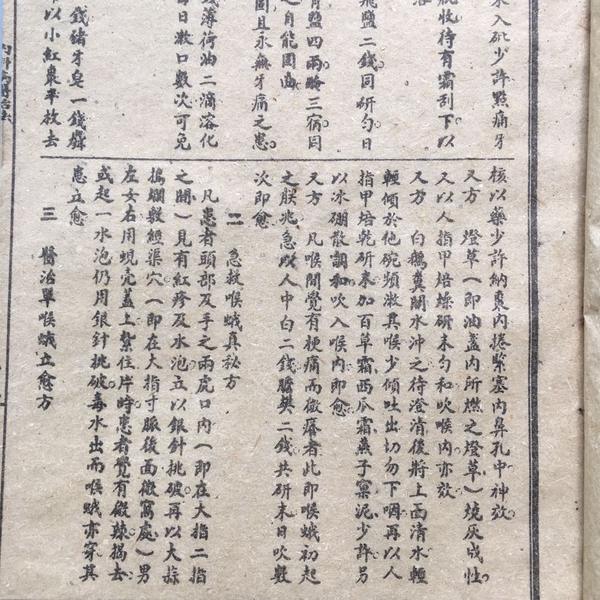 入砒少許點痛牙
收待有霜刮下以
飛鹽二錢同研勻日
青鹽四兩 三病因
自能固齒
固且永無牙痛之患
薄荷油二滴溶化
日漱口數次可免
錢豬牙皂一錢
以小紅棗半枚去
核以藥少許納棗內捲緊塞內鼻孔中神效
又方 燈草（即油盞內所燃之燈草）燒灰成性
又以人指甲焙燥研末勻和吹喉內亦效
又方 白鵝糞開水沖之待澄清後將上面清水輕
輕傾於他碗頻漱其喉少傾吐出切勿下咽再以人
指甲焙乾研末加百草霜西瓜霜燕子窠泥少許另
以冰硼散調和吹入喉內即愈
又方 凡喉間覺有梗痛而微癢者此即喉蛾初起
之朕兆急以人中白二錢膽礬二錢共研末日吹數
次即愈
二 急救喉蛾真秘方
凡患者頭部及手之兩虎口內（即在大指二指
之開）見有紅疹及水泡立以銀針挑破再以大蒜
搗爛敷經渠穴（即在大指寸脈後面微窩處）男
左女右用蜆壳蓋上紮住片時患者覺有酸辣揭去
或起一水泡仍用銀針挑破毒水出而喉蛾亦穿其
患立愈
三 醫治單喉蛾立愈方